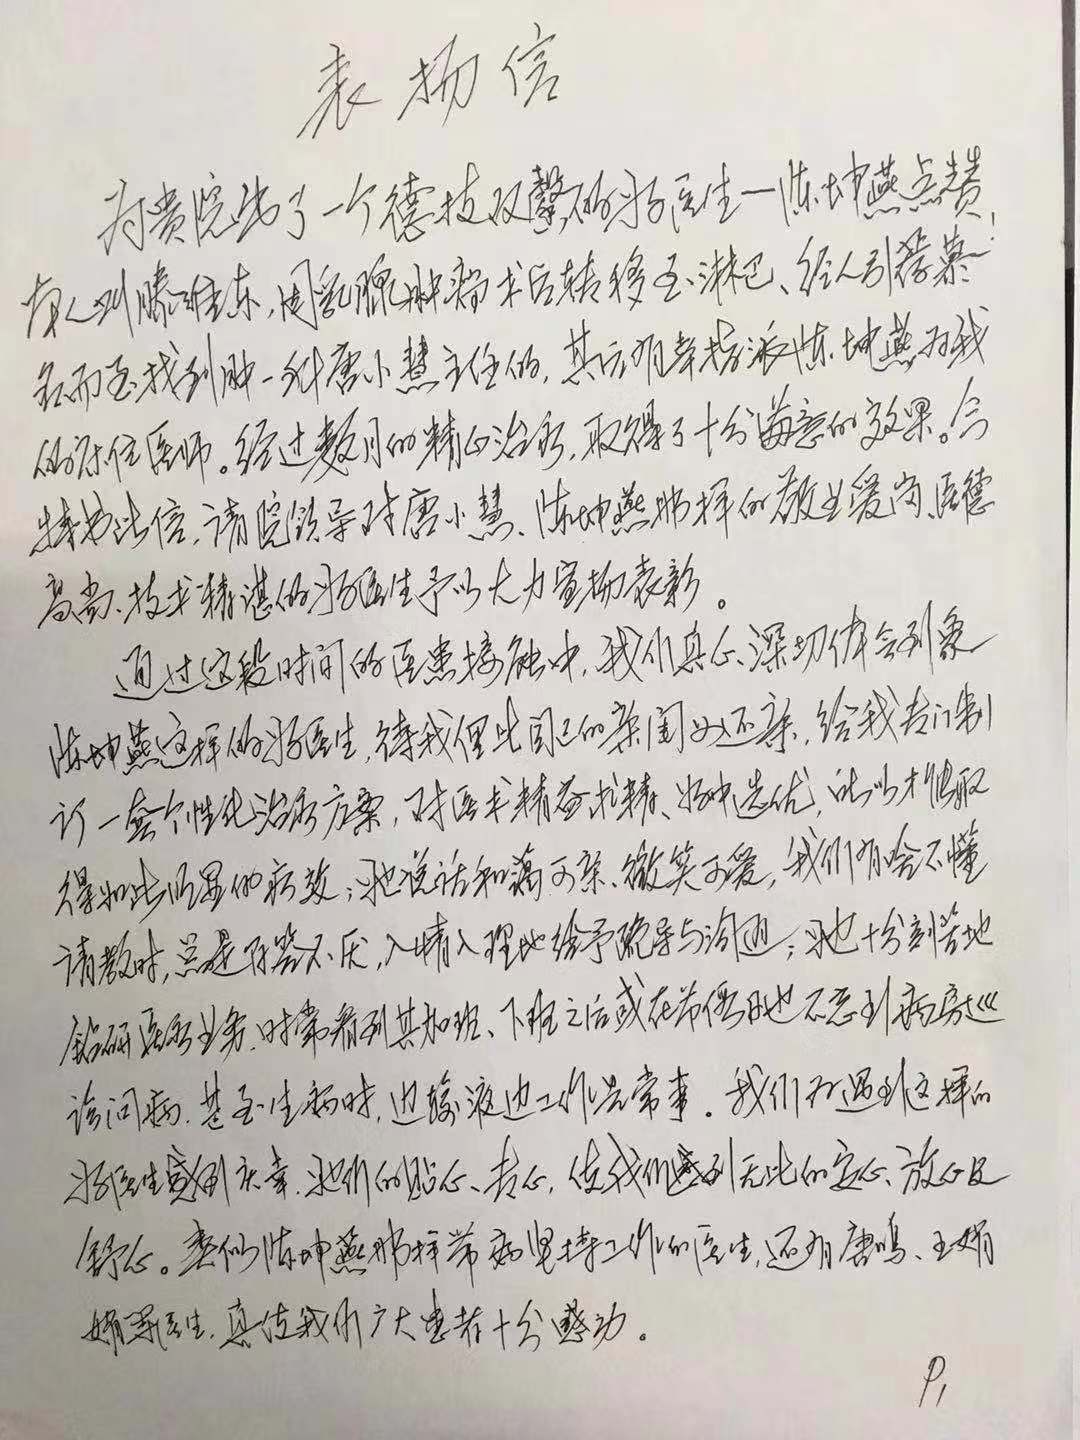 表扬信
为贵院出了一个德技双馨的好医生—陈坤燕点赞!
本人叫滕维东,因乳腺肿瘤术后转移至淋巴、经人引荐慕
名而至找到肿一科唐小慧主任的,其后有幸指派陈坤燕为我
的床位医师。经过数月的精心治疗,取得了十分满意的效果。今
特书此信,请院领导对唐小慧、陈坤燕那样的敬业爱岗、医德
高尚、技术精湛的好医生予以大力宣扬表彰。
通过这段时间的医患接触中,我们真心、深切体会到象
陈坤燕这样的好医生,待我俩比自己的亲闺女还亲,给我专门制
订一套个性化治疗方案,对医术精益求精、好中选优,所以才能取
得如此明显的疗效;她说话和蔼可亲、微笑可爱,我们有啥不懂
请教时,总是百答不厌,入情入理地给予疏导与沟通;她十分刻苦地
钻研医疗业务,时常看到其加班、下班之后或在节假日也不忘到病房巡
诊问病,甚至生病时,边输液边工作是常事。我们为遇到这样的
好医生感到庆幸,她们的贴心、专心,使我们感到无比的定心、放心及
舒心。类似陈坤燕那样带病坚持工作的医生,还有唐鸣、王娟
娟等医生,真使我们广大患者十分感动。
P1